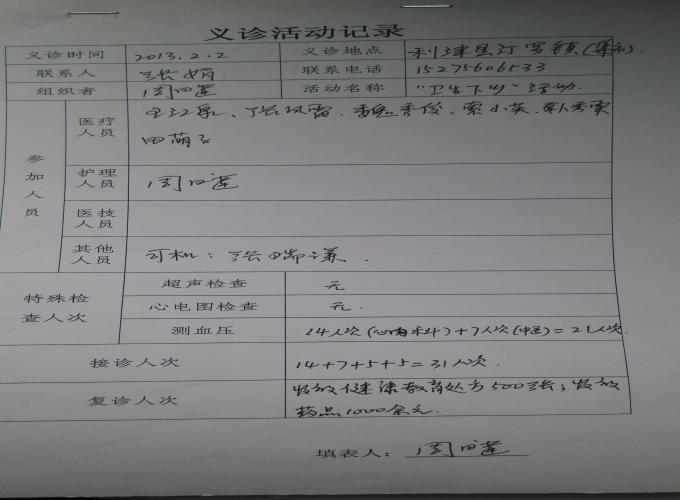 义诊活动记录
义诊时间 2013.2.2 义诊地点 利津县汀罗镇(集市).
联系人 张娟. 联系电话 15275606533
组织者 周田莲 活动名称 “卫生下乡”活动.
参加人员
医疗人员 王江泉、张风雷、魏秀俊、索小英、
田萌
护理人员 周田莲
医技人员
其他人员 司机: 张瑞谦.
特殊检查人次
超声检查 无
心电图检查 无.
测血压 14人次(心内科)+7人次(中医)=21人次.
接诊人次 14+7+5+5=31人次.
复诊人次 发放健康教育处方500张;发放
药品1000余元.
填表人: 周田莲